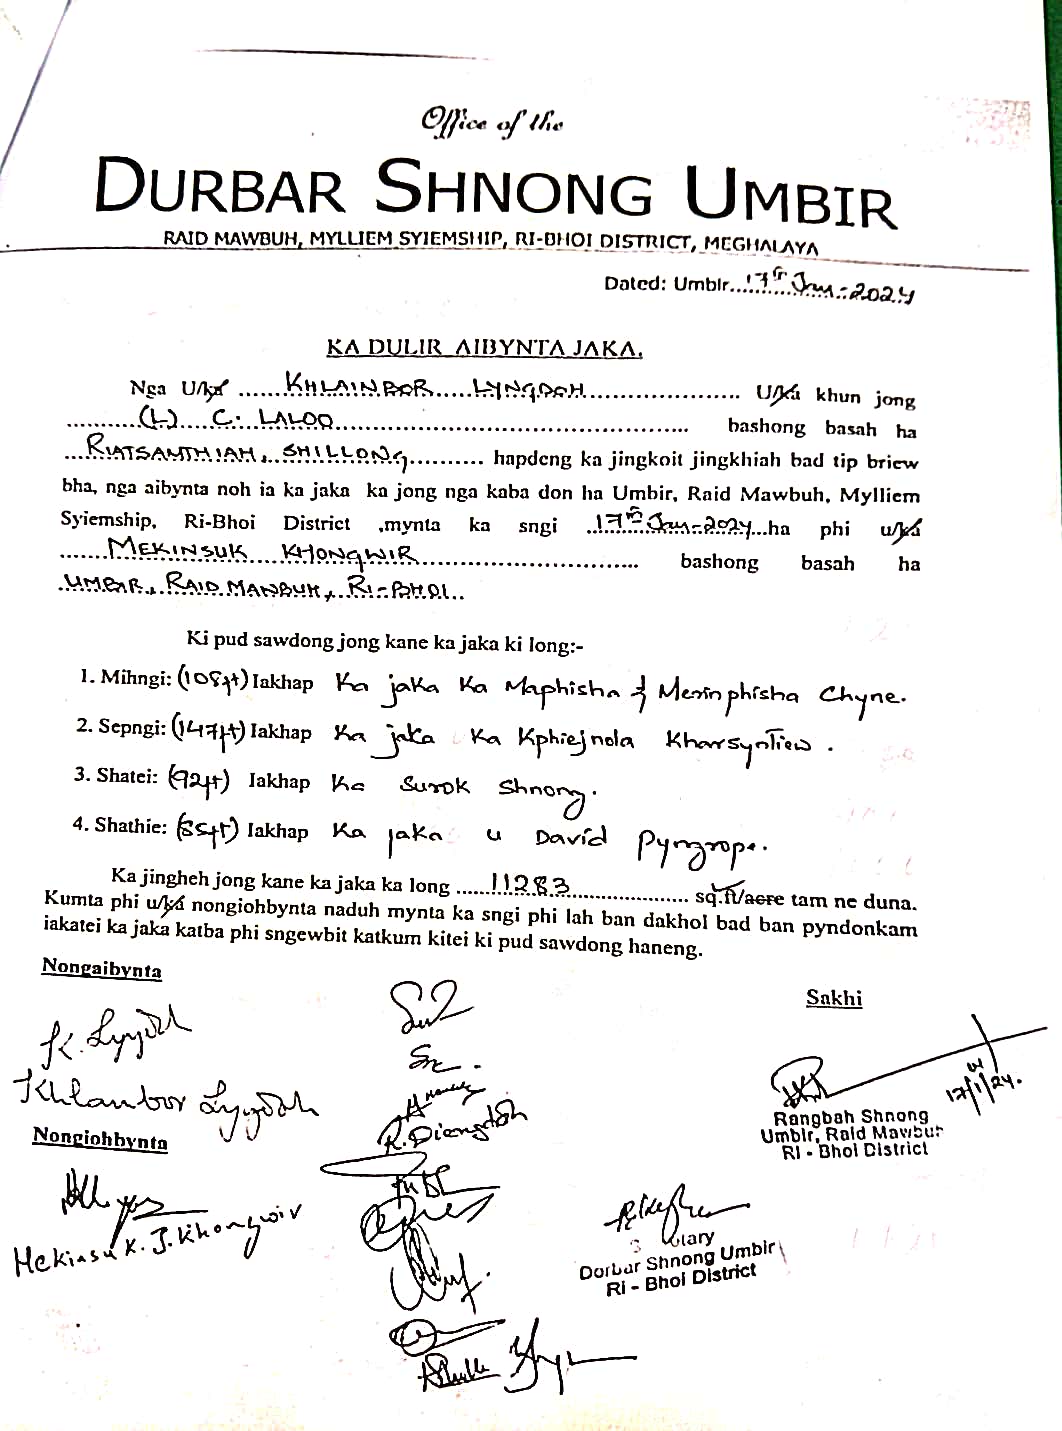 Office of the
DURBAR SHNONG UMBIR
RAID MAWBUH, MYLLIEM SYIEMSHIP, RI-BHOI DISTRICT, MEGHALAYA
Dated: Umbir..17th Jan-2024
KA DULIR AIBYNTA JAKA.
Nga U/ka ......KHLAINBOR LYNGDOH...... U/ka khun jong
......(L) C. LALOO...... bashong basah ha
...RIATSAMTHIAH, SHILLONG.......... hapdeng ka jingkoit jingkhiah bad tip briew
bha, nga aibynta noh ia ka jaka ka jong nga kaba don ha Umbir, Raid Mawbuh, Mylliem
Syiemship, Ri-Bhoi District ,mynta ka sngi ..17th Jan-2024...ha phi u/ka
.......MEKINSUK KHONGWIR....... bashong basah ha
UMBIR, RAID MAWBUH, RI-BHOI..
Ki pud sawdong jong kane ka jaka ki long:-
1. Mihngi: (108ft) Iakhap Ka jaka Ka Maphisha & Merinphisha Chyne.
2. Sepngi: (147ft) Iakhap Ka jaka Ka Kphiejnola Kharsyntiew.
3. Shatei: (92ft) Iakhap Ka Surok Shnong.
4. Shathie: (85ft) Iakhap Ka jaka u David Pyngrope.
Ka jingheh jong kane ka jaka ka long ......11283...... sq.ft/acre tam ne duna.
Kumta phi u/ka nongiohbynta naduh mynta ka sngi phi lah ban dakhol bad ban pyndonkam
iakatei ka jaka katba phi sngewbit katkum kitei ki pud sawdong haneng.
Nongaibynta
Sakhi
K. Lyngdoh
Khlainbor Lyngdoh
17/1/24.
R. Diengdoh
Rangbah Shnong
Umbir, Raid Mawbuh
RI - Bhoi District
Nongiohbynta
Mekinsuk. J. Khongwir
Dorbar Shnong Umbir
Ri - Bhoi District